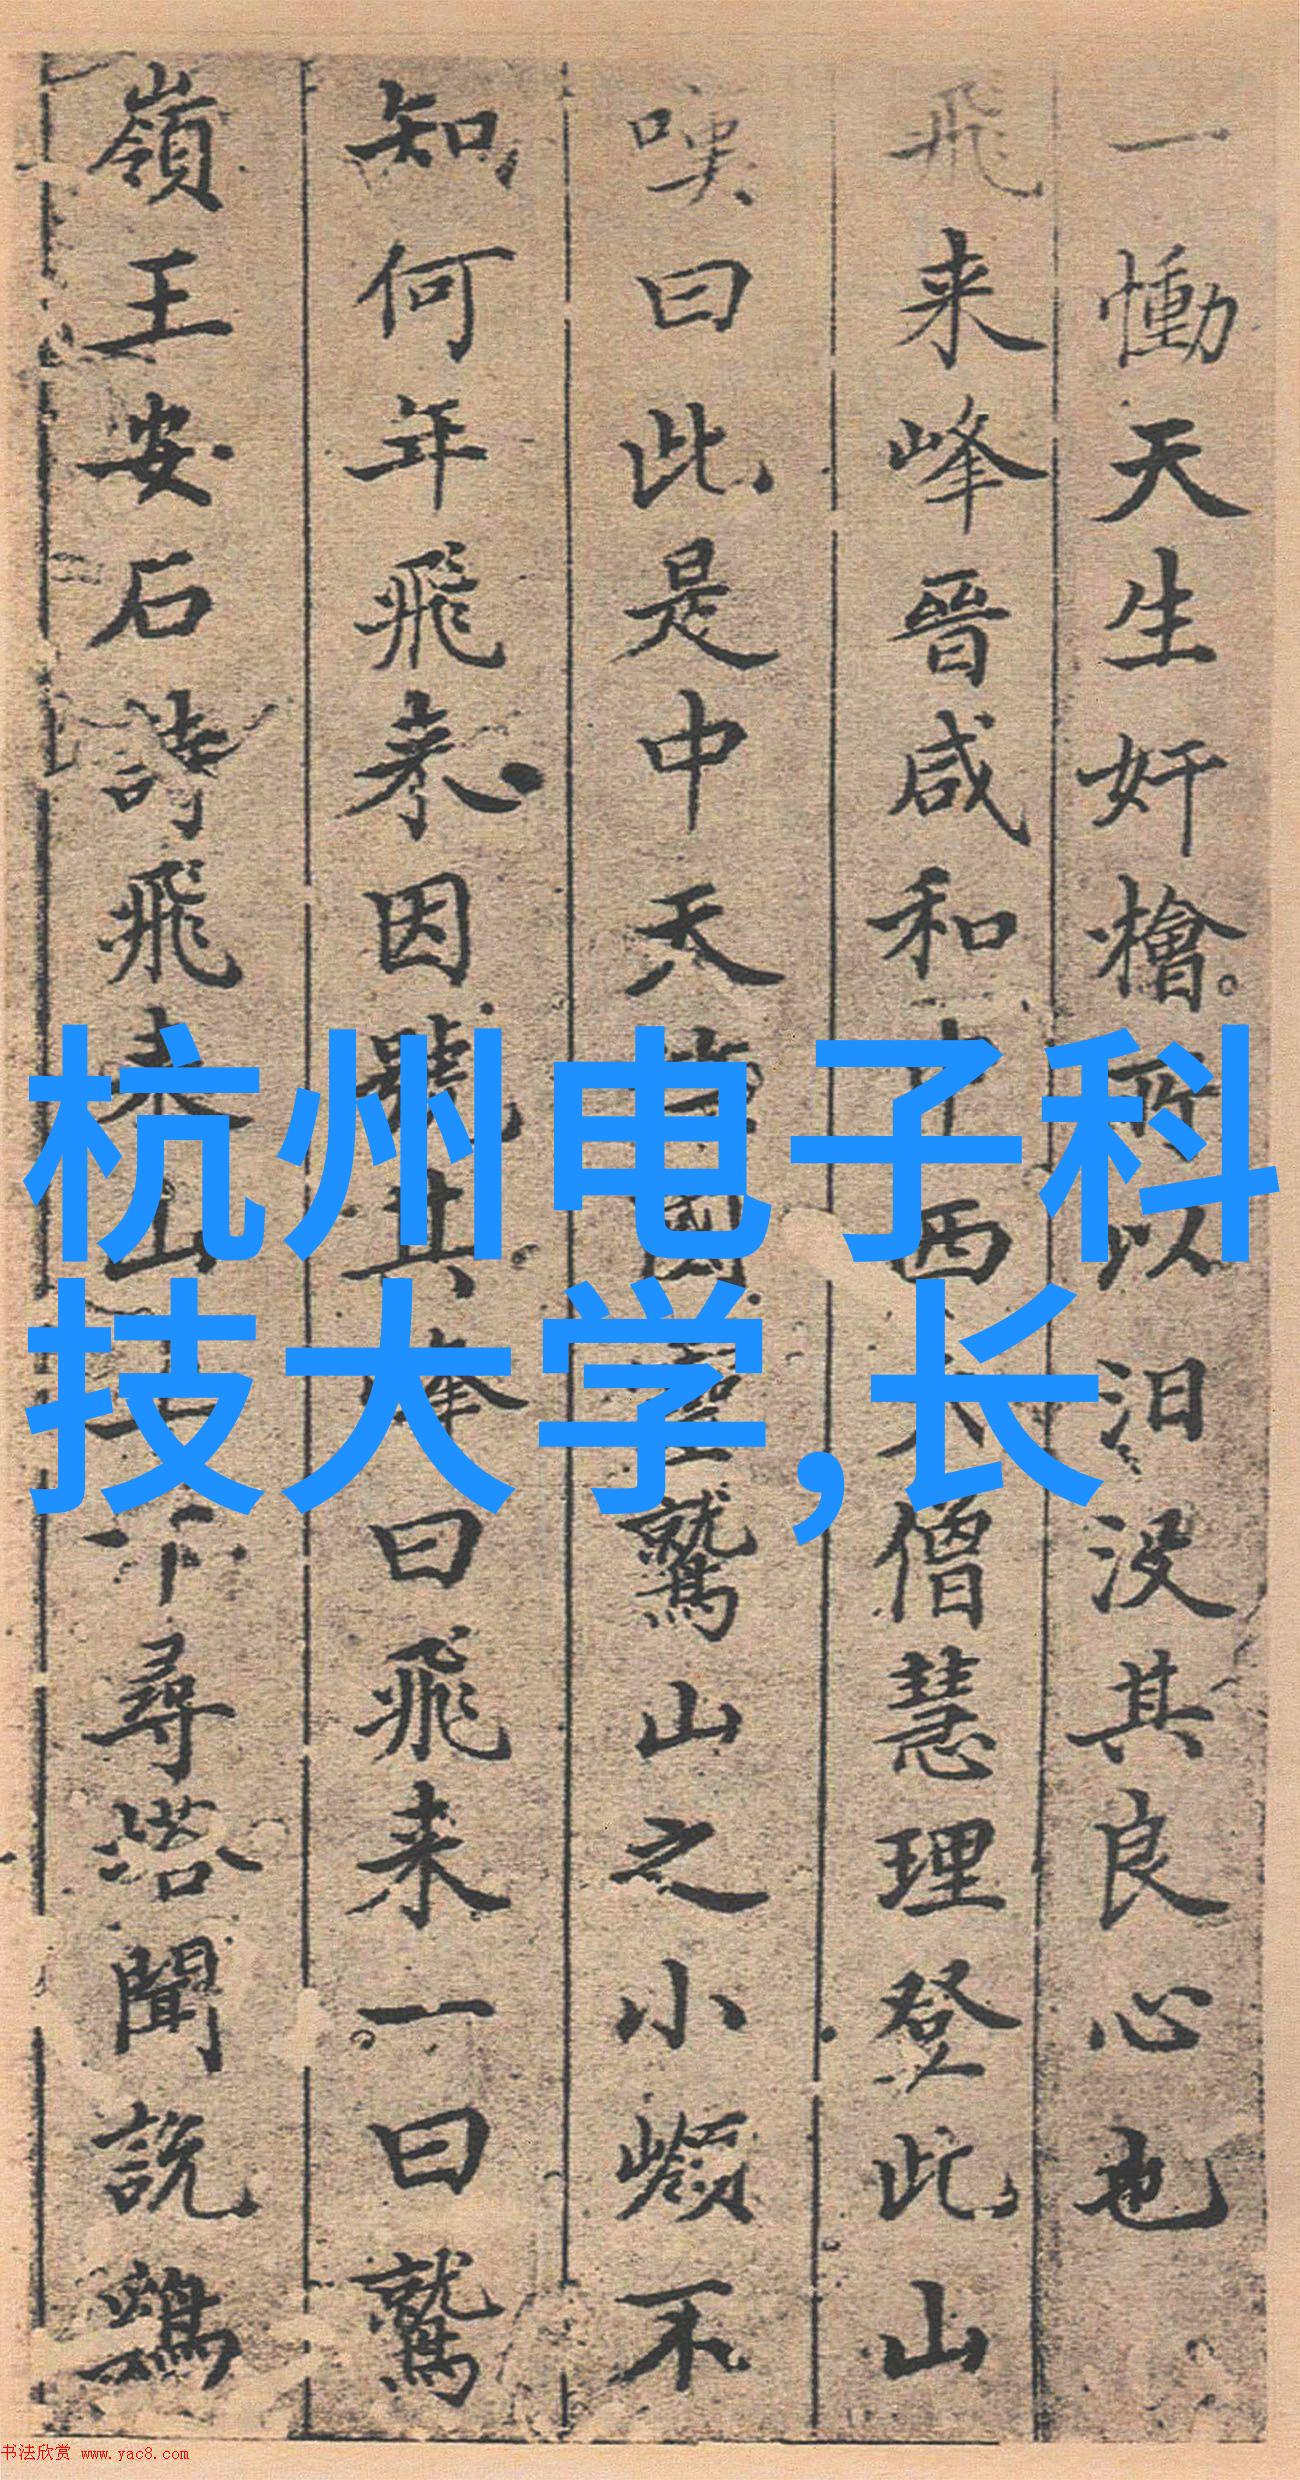 一慟天生奸檜所以汨没其良心也
飛来峰晉咸和中西天僧慧理登此山
嘆曰此是中天竺國靈鷲山之小嶺不
知何年飛来因號其峰曰飛来一曰鷲
嶺王安石詩飛来山上千尋塔聞説鷄
杭州电子科
技大学,长
书法欣赏 www.yac8.com